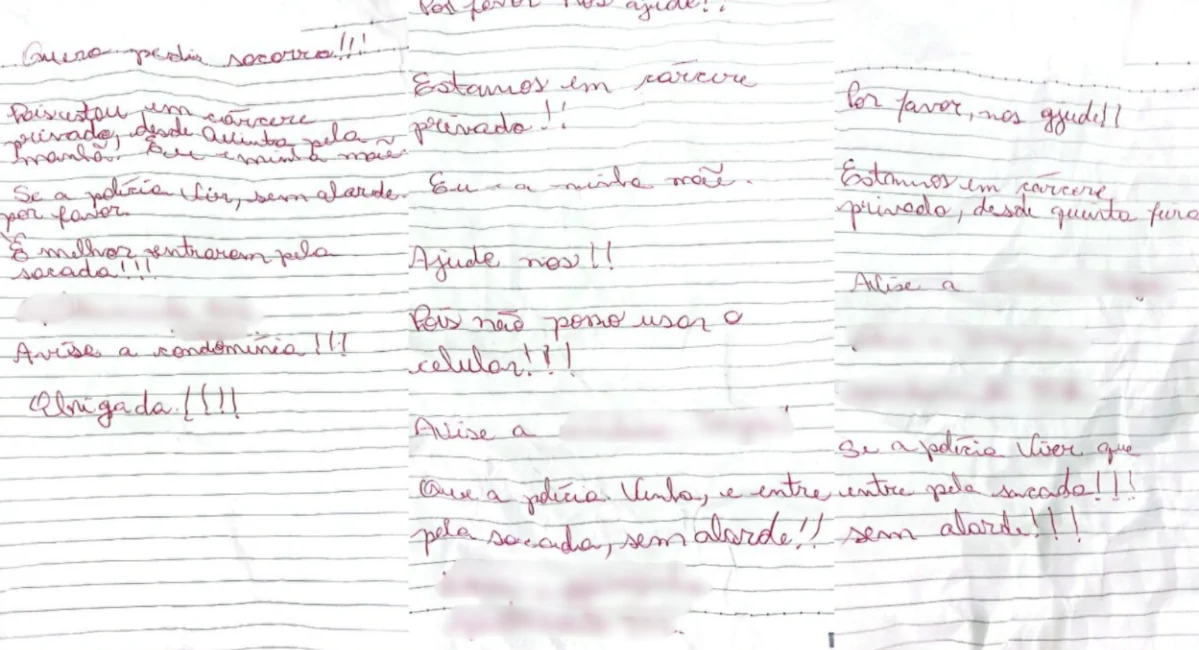 Quero pedir socorro!!!
Pois estou em cárcere
privado, desde Quinta pela
manhã. Eu e minha mãe.
Se a polícia vir, sem alarde
por favor.
É melhor entrarem pela
sacada!!!
Avise a condomínia!!!
Obrigada!!!!
Por favor nos ajude!!
Estamos em cárcere
privado!!
Eu e a minha mãe.
Ajude nos!!
Pois não posso usar o
celular!!!
Avise a
Que a polícia venha, e entre
pela sacada, sem alarde!!
Por favor, nos ajude!!
Estamos em cárcere
privado, desde quinta feira
Avise a
Se a polícia vier que
entre pela sacada!!!
sem alarde!!!